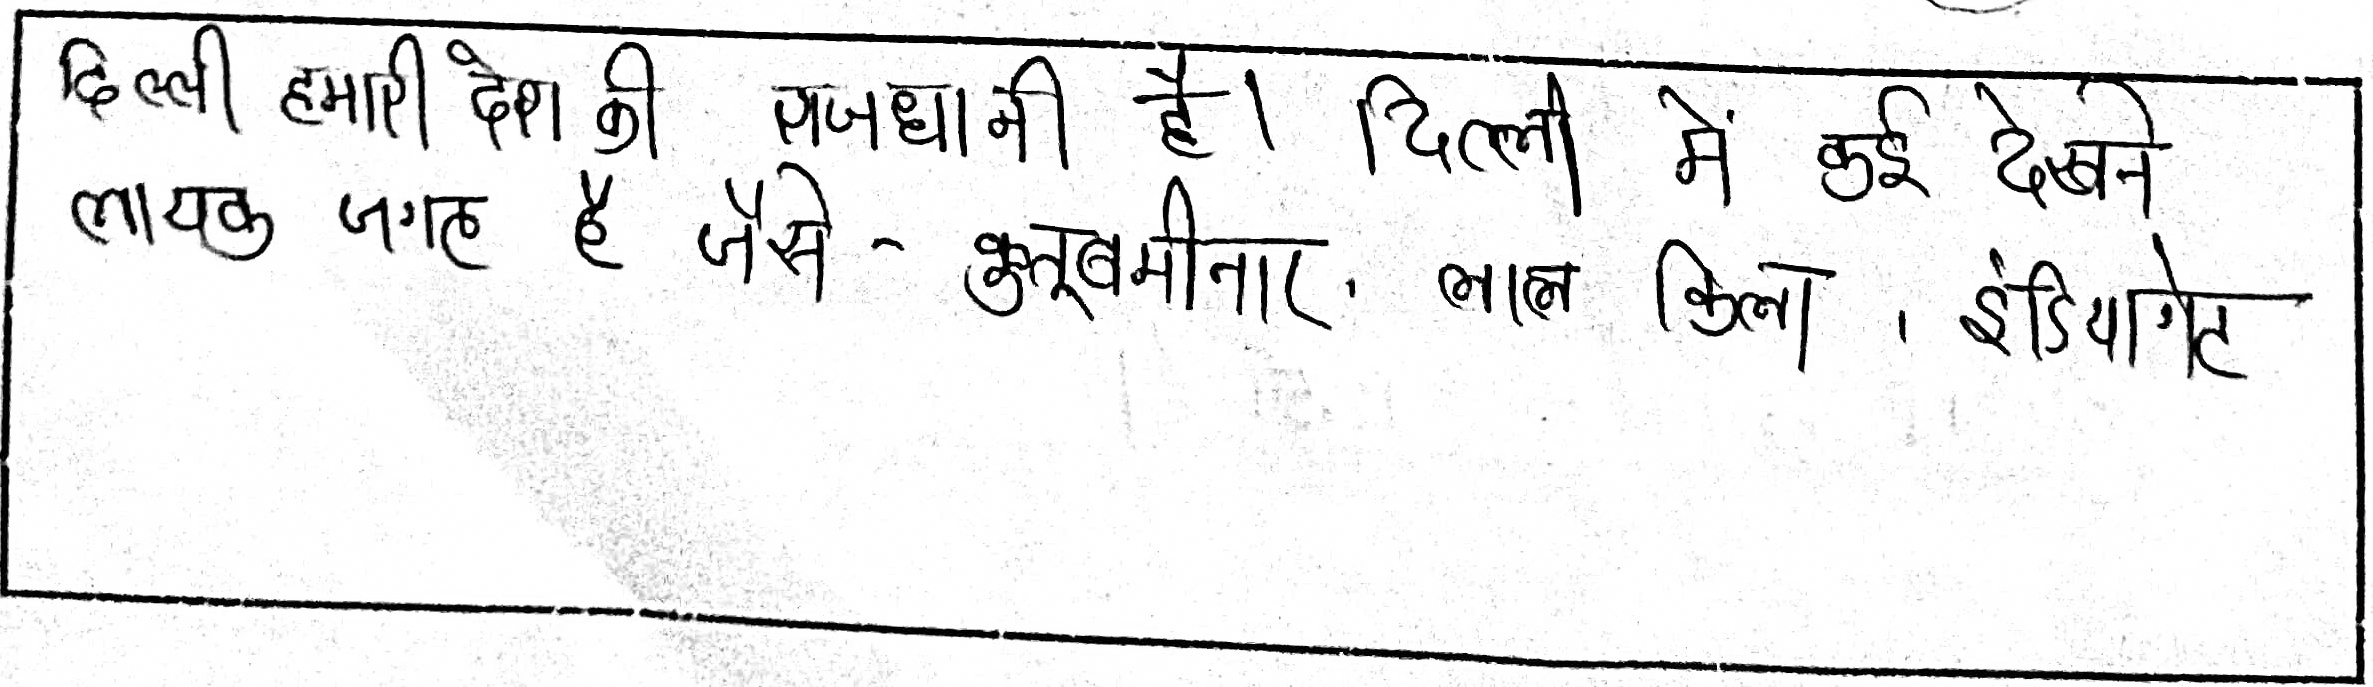 दिल्ली हमारी देश की राजधानी है। दिल्ली में कई देखने
लायक जगह है जैसे - कुतूबमीनार, लाल किला, इंडियागेट